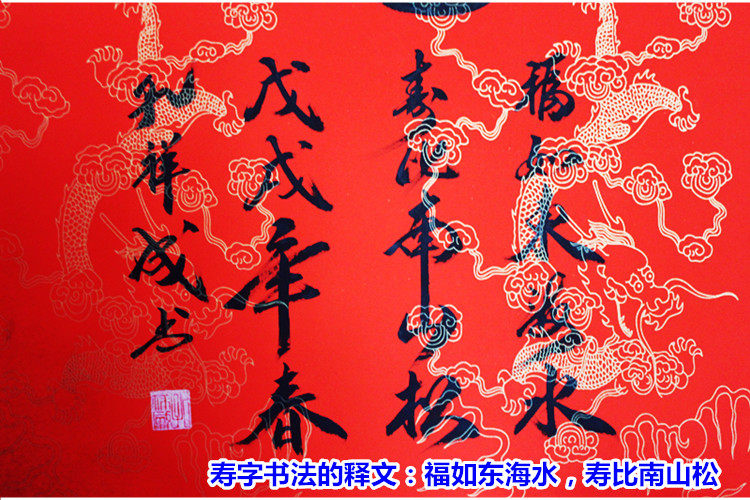 福如东海水
寿比南山松
戊戌年春
祥成
寿字书法的释文：福如东海水，寿比南山松